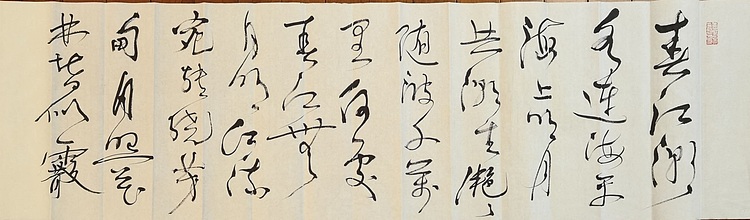 春江潮
水連海平
海上明月
共潮生灩々
随波千萬
里何處
春江無
月明江流
宛轉繞芳
甸月照花
林皆似霰